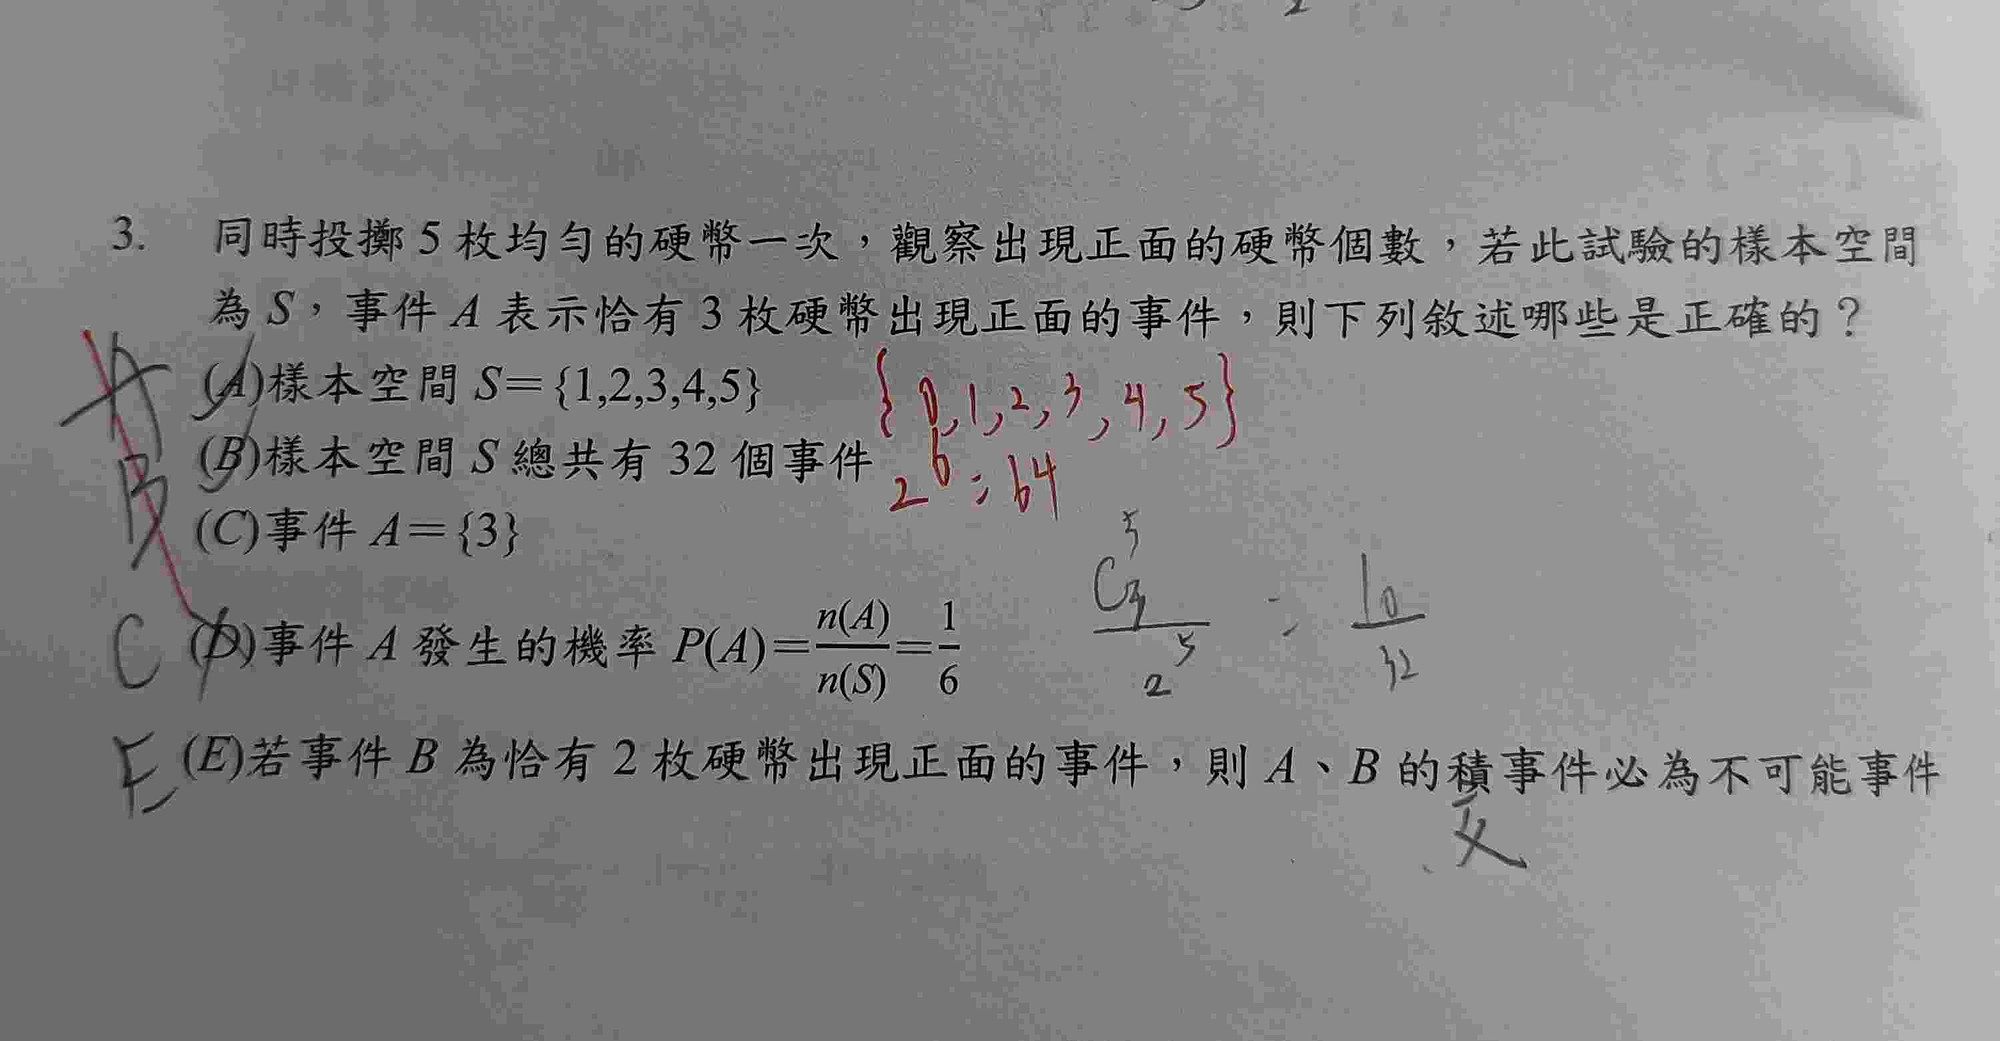 3. 同時投擲 5 枚均勻的硬幣一次，觀察出現正面的硬幣個數，若此試驗的樣本空間
為 S，事件 A 表示恰有 3 枚硬幣出現正面的事件，則下列敘述哪些是正確的？
A
(A)樣本空間 S={1,2,3,4,5} {0,1,2,3,4,5}
B
(B)樣本空間 S 總共有 32 個事件 2^6=64
(C)事件 A={3}
C
(D)事件 A 發生的機率 P(A)=n(A)/n(S)=1/6 C^5_3/2^5 = 10/32
E
(E)若事件 B 為恰有 2 枚硬幣出現正面的事件，則 A、B 的積事件必為不可能事件
交